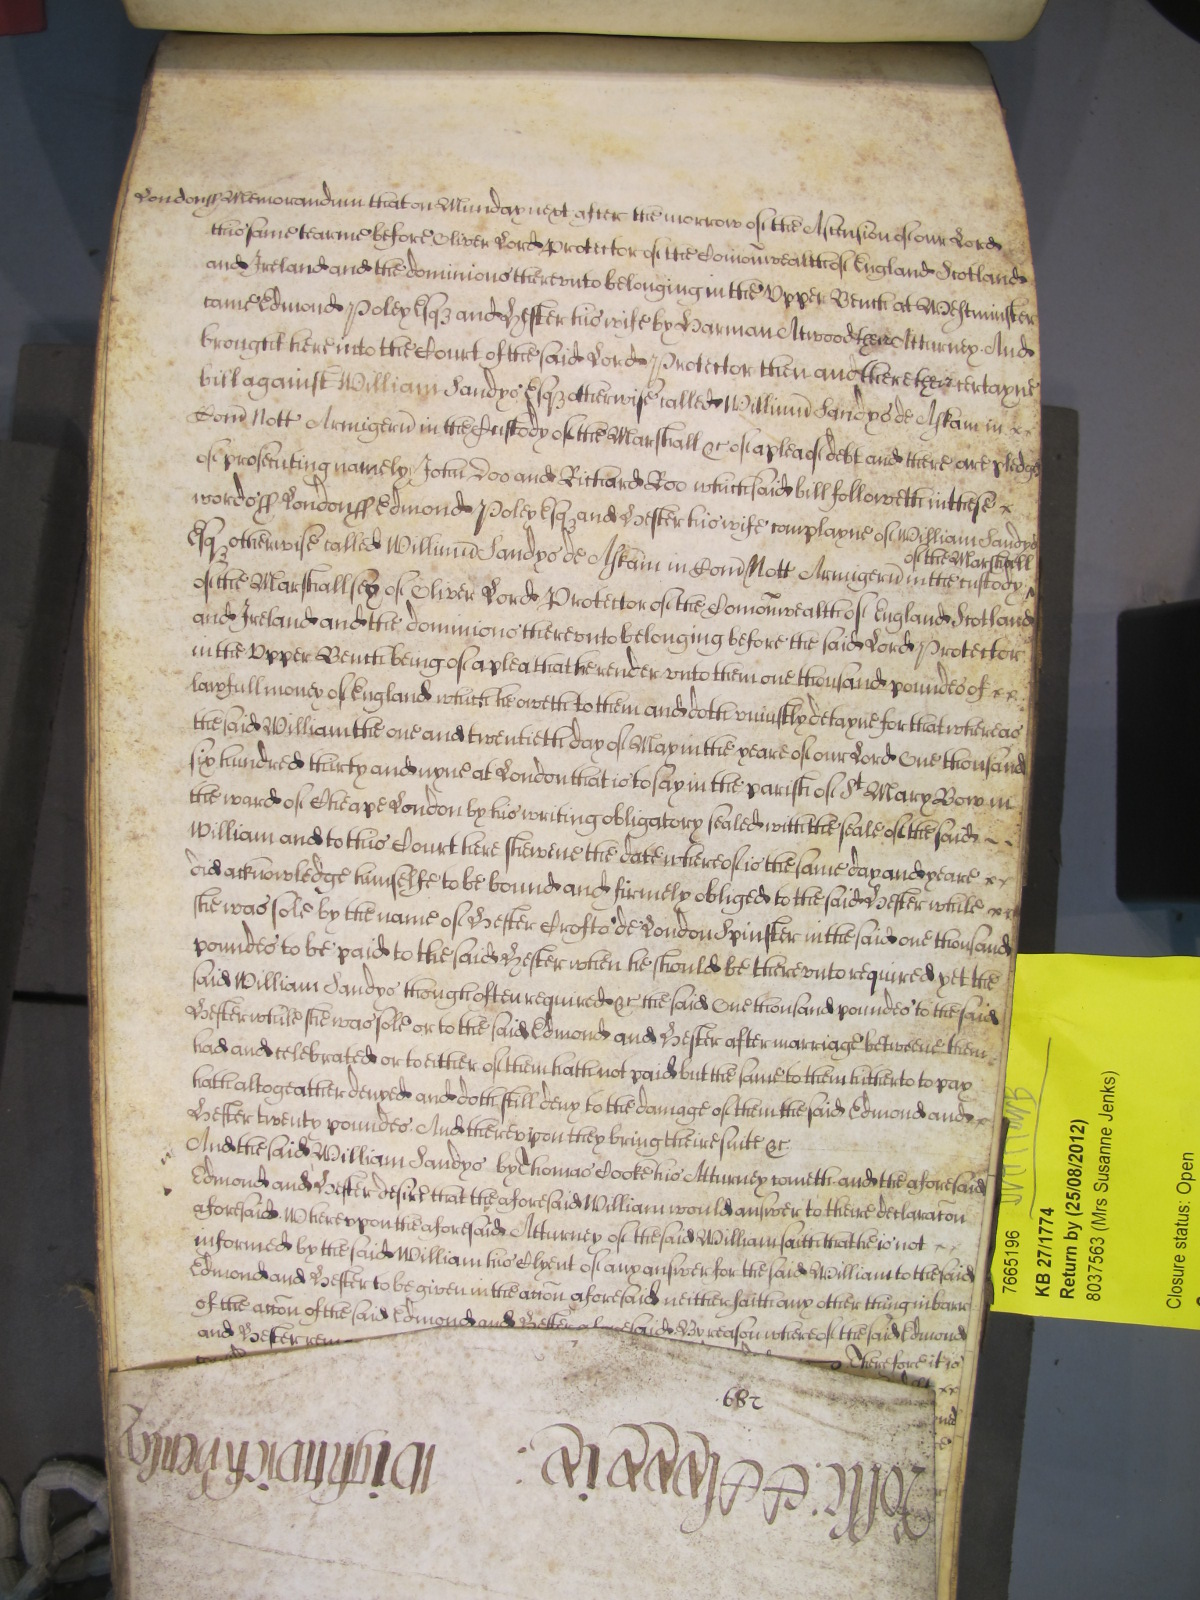 London ss Memorandum that on Munday next after the morrow of the Ascension of our Lord
this same tearme before Oliver Lord Protector of the Comonwealth of England Scotland
and Ireland and the dominions therevnto belonging in the Vpper Bench at Westminster
came Edmond Poley Esqz and Hester his wife by Harman Atwood their Atturney And
brought here into the Court of the said Lord Protector then and there their certayne
bill against William Sandys Esqz otherwise called Willimu Sandys de Askam in xx
Com Nott Armigeru in the Custody of the Marshall &c of a plea of debt and there are pledges
of prosecuting namely John Doo and Richard Roo which said bill followeth in these x
words ss London ss Edmond Poley Esqz and Hester his wife complayne of William Sandys
Esqz otherwise called Willimu Sandys de Askam in Com Nott Armigeru in the custody
of the Marshall
of the Marshallsey of Oliver Lord Protector of the Comonwealth of England Scotland
and Ireland and the dominions therevnto belonging before the said Lord Protector
in the Vpper Bench being of a plea that he render vnto them one thousand poundes of xx
lawfull money of England which he oweth to them and doth vniustly detayne for that whereas
the said William the one and twentieth day of May in the yeare of our Lord One thousand
six hundred thirty and nyne at London that is to say in the parish of St Mary Bow in
the ward of Cheape London by his writing obligatory sealed with the seale of the said
William and to this Court here shewene the date whereof is the same day and yeare xx
did acknowledge himselfe to be bound and firmely obliged to the said Hester while xx
she was sole by the name of Hester Crofts de London Spinster in the said one thousand
poundes to be paid to the said Hester when he should be therevnto required yet the
said William Sandys though often required &c the said One thousand poundes to the said
Hester while she was sole or to the said Edmond and Hester after marriage betweene them
had and celebrated or to either of them hath not paid but the same to them hitherto to pay
hath altogeather denyed and doth still deny to the damage of them the said Edmond and x
Hester twenty poundes And therevpon they bring theire suite &c
And the said William Sandys by Thomas Cooke his Atturney cometh and the aforesaid
Edmond and Hester desire that the aforesaid William would answer to theire declaraton
aforesaid Wherevppon the aforesaid Atturney of the said William saith that he is not
informed by the said William his Clyent of any answer for the said William to the said
Edmond and Hester to be given in the accon aforesaid neither saith any other thing in barr
of the accon of the said Edmond and Hester aforesaid By reason whereof the said Edmond
and Hester rem
Therefore it is
682
Wightwick
7665196
KB 27/1774
Return by (25/08/2012)
8037563 (Mrs Susanne Jenks)
Closure status: Open